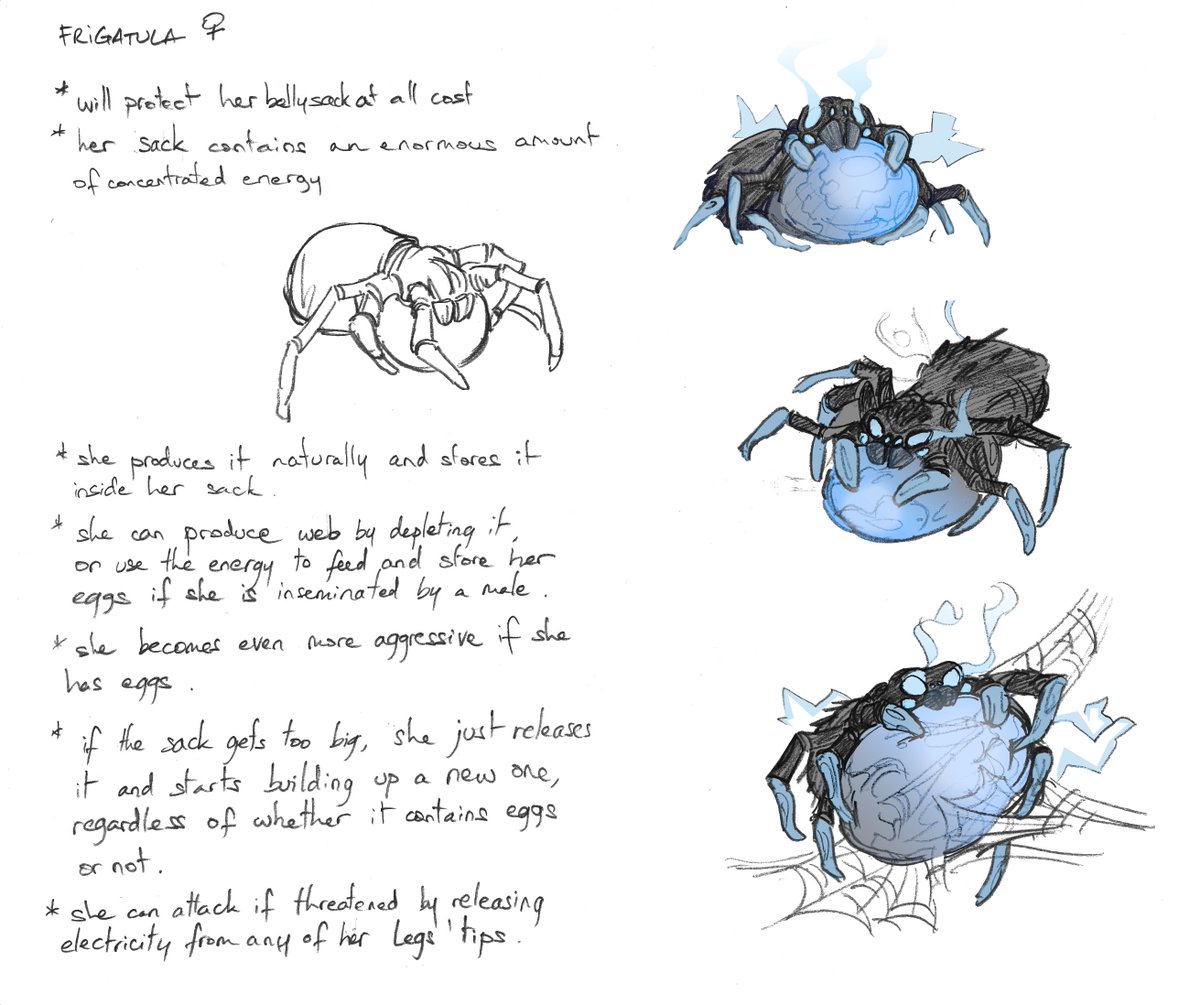 FRiGATULA ♀
* will protect her bellysack at all cost
* her sack contains an enormous amount
of concentrated energy
* she produces it naturally and stores it
inside her sack.
* she can produce web by depleting it,
or use the energy to feed and store her
eggs if she is inseminated by a male.
* she becomes even more aggressive if she
has eggs.
* if the sack gets too big, she just releases
it and starts building up a new one,
regardless of whether it contains eggs
or not.
* she can attack if threatened by releasing
electricity from any of her Legs' tips.